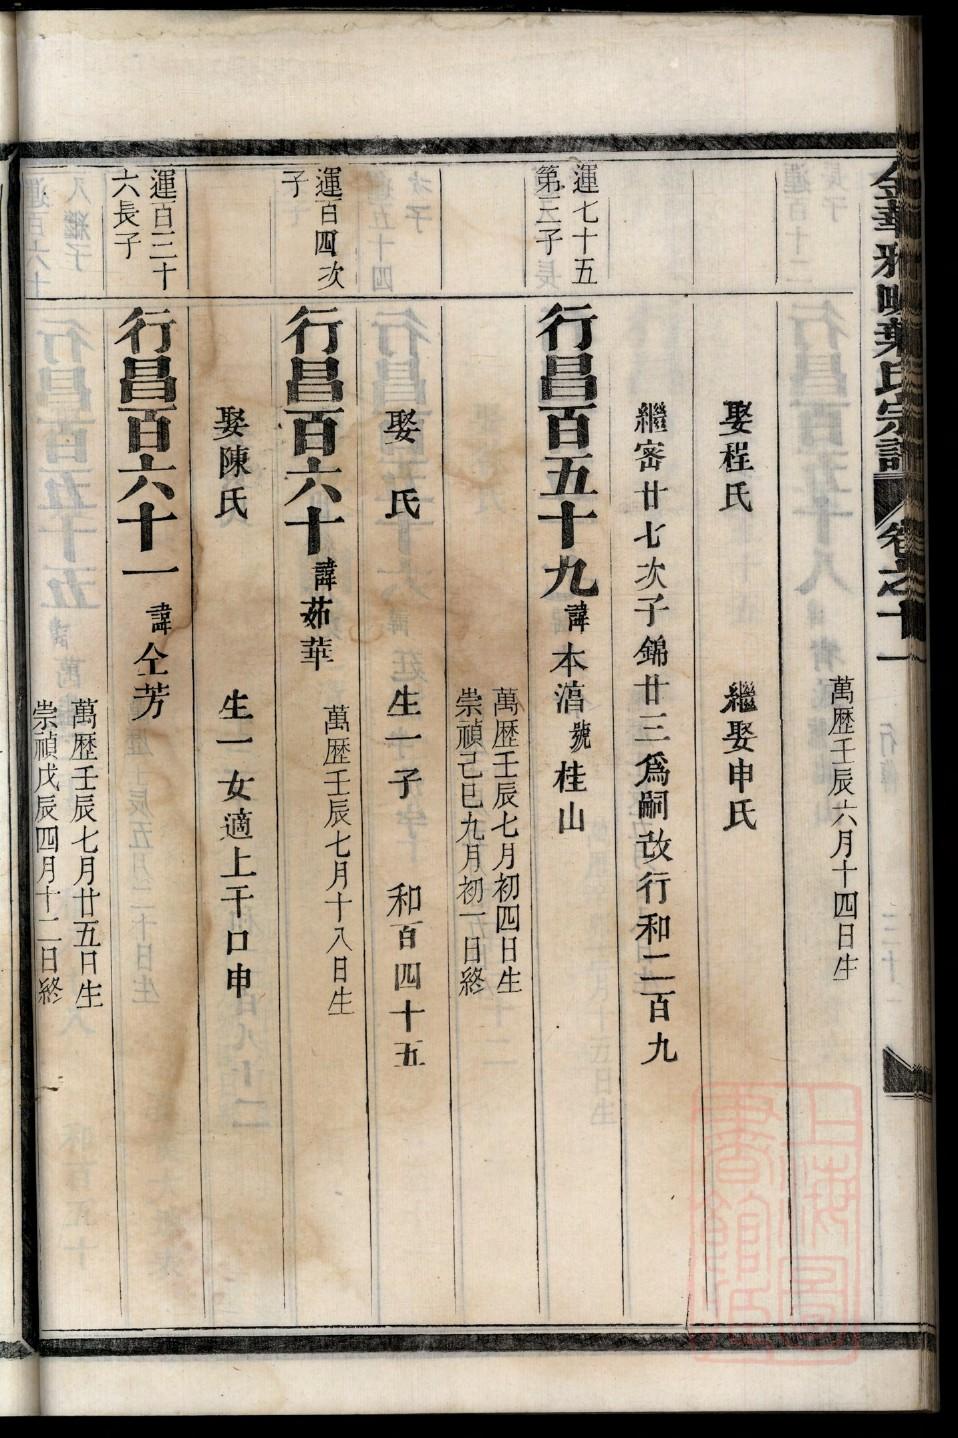 金華雅畈葉氏宗譜 卷之十一
萬歷壬辰六月十四日生
娶程氏 繼娶申氏
繼密廿七次子錦廿三爲嗣改行和二百九
運七十五第三子
行昌百五十九 諱本㵮 號桂山
萬歷壬辰七月初四日生
崇禎己巳九月初一日終
娶 氏 生一子 和百四十五
運百四次子
行昌百六十 諱茹華
萬歷壬辰七月十八日生
娶陳氏 生一女適上干口申
運百三十六長子
行昌百六十一 諱仝芳
萬歷壬辰七月廿五日生
崇禎戊辰四月十二日終
上海圖書館藏